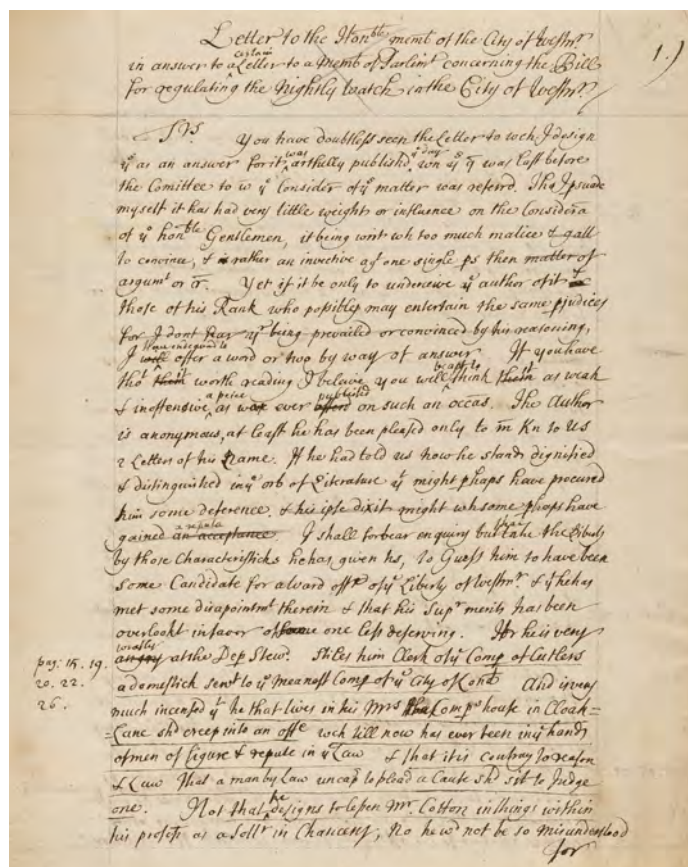 Letter to the Hon^ble memb^r of the City of Westm^r
in answer to a certain Letter to a Memb of Parlim^t concerning the Bill
for regulating the Nightly Watch in the City of Westm^r
1.)
S^rs. You have doubtless seen the Letter to wch I design
y^s as an answer for it was artfully published y^e day
was last before
the Comittee to w y^e Consider of y^e matter was referrd. Tho I psuade
myself it has had very little weight or influence on the Considera
of y^e hon^ble Gentlemen, it being writt wh too much malice & gall
to convince, & is rather an invective ag^t one single ps then matter of
argum^t or Yet if it be only to undeceive y^e author of it &
those of his Rank who possibley may entertain the same pjudices
for I dont fear y^r being prevailed or convinced by his reasoning,
I will have indeavord to offer a word or two by way of answer If you have
tho^t them worth reading I beleive you will be apt to think them as weak
& inoffensive a peice as was ever afford published on such an occas. The Author
is anonymous, at least he has been pleased only to m Kn to us
2 Letters of his Name. If he had told us how he stands dignified
& distinguished in y^e orb of Literature y^t might phaps have procured
him some deference. & his ipse dixit might wh some phaps have
gained an acceptance. a reputa I shall forbear enquiry but take the Liberty
by those Characteristicks he has given us, to Guess him to have been
some Candidate for a ward off^ce of y^e Liberty of Westm^r & y^t he has
met some disapointm^t therein & that his Sup^r merits has been
overlookt in favor of some one less deserving. For he is very
angry wroth at the Dep Stew^d. Stiles him Clerk of y^e Comp of Cutlers
pag. 15. 19.
20. 22.
26.
a domestick serv^t to y^e meanest Comp of y^e City of Lond And is very
much incensed y^t he that lives in his M^rs the Comp^s house in Cloak=
=Lane sh^d creep into an off^ce wch till now has ever been in y^e hands
of men of figure & repute in y^e Law & that it is contrary to reason
& Law That a man by Law uncap to plead a Cause sh^d sit to Judge
one. Not that he designs to lessen M^r. Cotton in things within
his profess as a Soll^r in Chancery, No he w^d not be so misunderstood
for